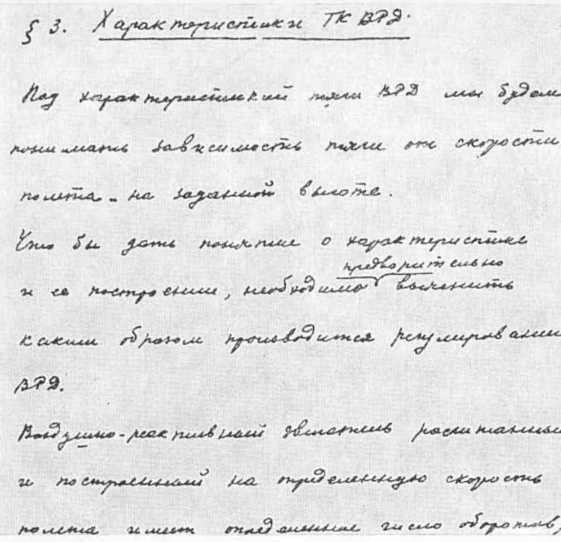 § 3. Характеристики ТК ВРД.
Под характеристикой тяги ВРД мы будем
понимать зависимость тяги от скорости
полета на заданной высоте.
Что бы дать понятие о характеристике
предварительно
и ее построении, необходимо выяснить
каким образом производится регулировании
ВРД.
Воздушно-реактивный двигатель расчитанный
и построенный на определенную скорость
полета имеет определенное число оборотов,